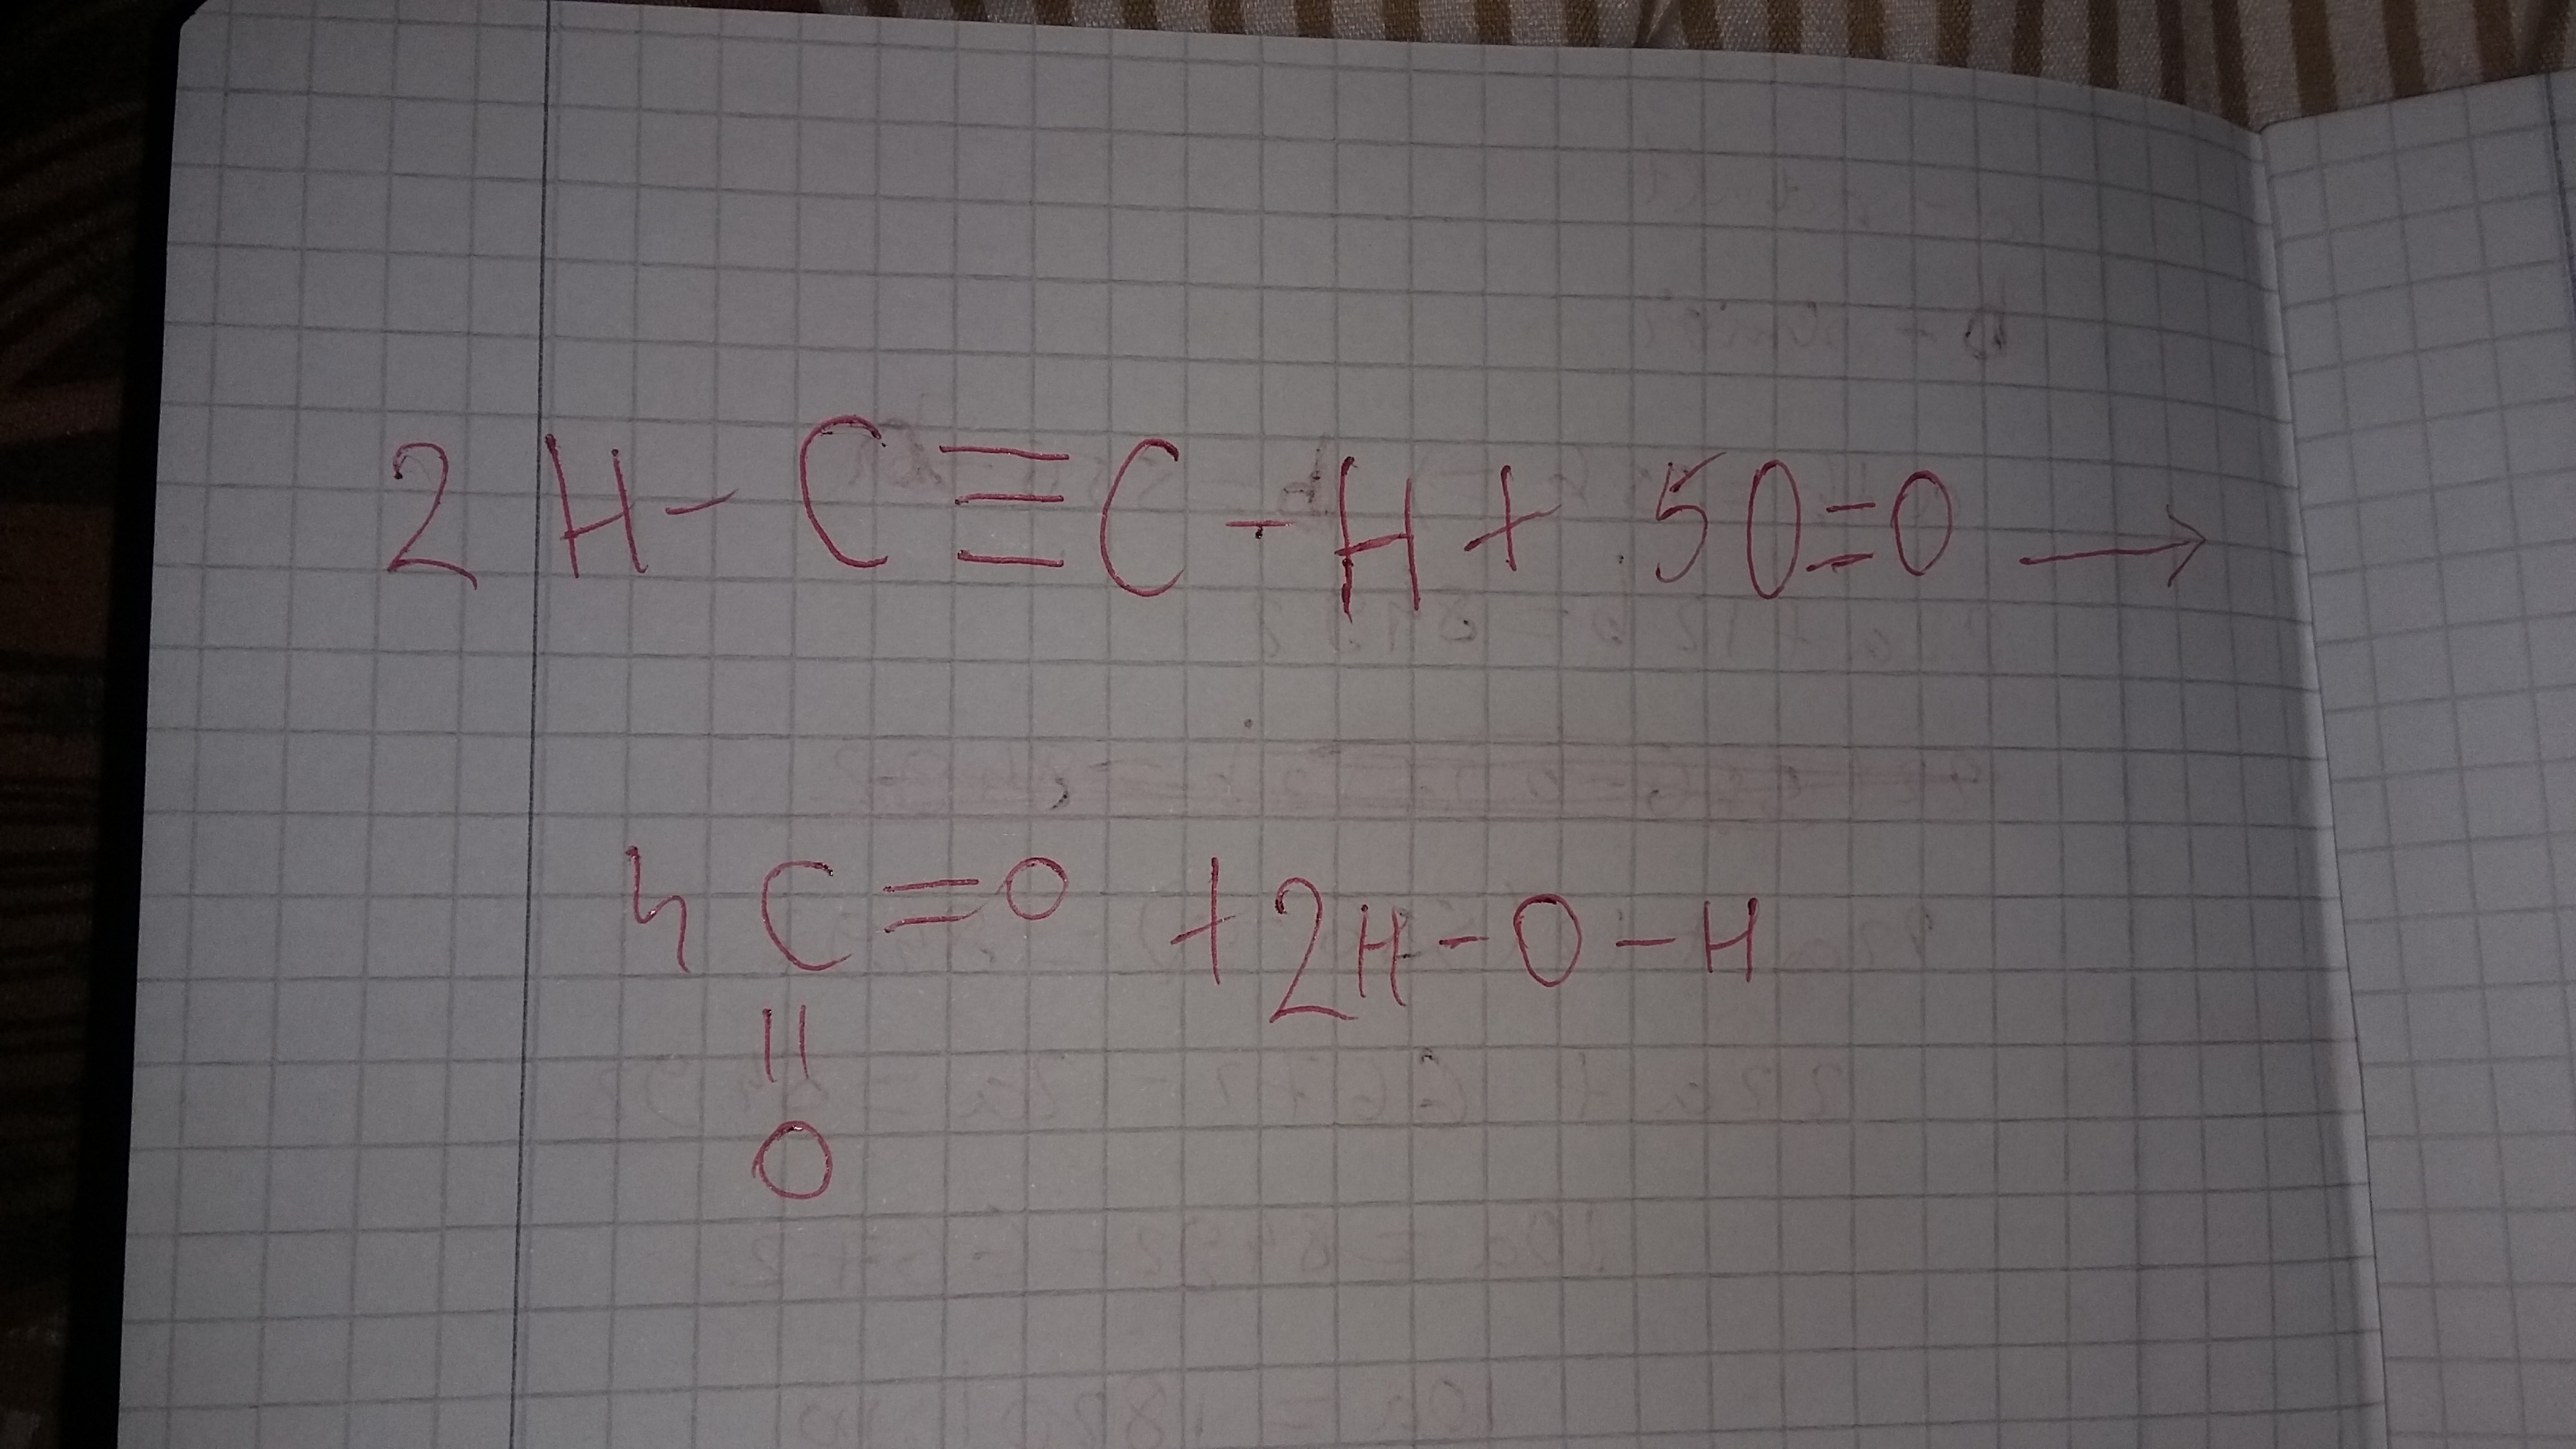 2 H - C ≡ C - H + 5 O = O →
4 C = O + 2 H - O - H
||
O